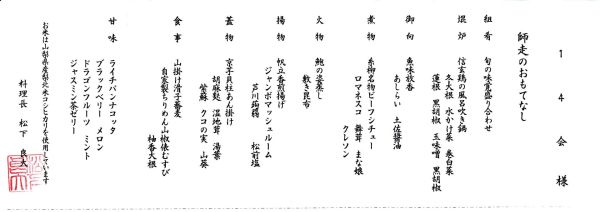 14会様
師走のおもてなし
祖肴 旬の味覚盛り合わせ
焜炉 信玄鶏の風呂吹き鍋
冬大根 水かけ菜 巻白菜
蓮根 黒胡椒 玉味噌 黒胡椒
御向 魚味枚香
あしらい 土佐醤油
煮物 糸柳名物ビーフシチュー
ロマネスコ 舞茸 まな娘
クレソン
火物 鮑の姿蒸し
敷き昆布
揚物 帆立香煎揚げ
ジャンボマッシュルーム
芦川蒟蒻 松前塩
蓋物 京芋貝柱あん掛け
胡麻麩 湿地茸 湯葉
紫蘇 クコの実 山葵
食事 山掛け滑子蕎麦
自家製ちりめん山椒俵むすび
柚香大根
甘味 ライチパンナコッタ
ブラックベリー メロン
ドラゴンフルーツ ミント
ジャスミン茶ゼリー
お米は山梨県産梨北米コシヒカリを使用しています
料理長 松下 良太